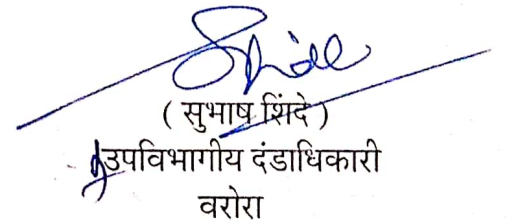 ( सुभाष शिंदे )
उपविभागीय दंडाधिकारी
वरोरा